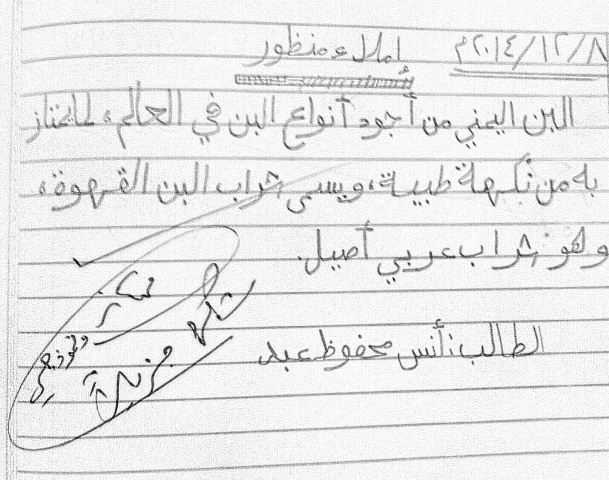 ٢٠١٤/١٢/٨م
إملاء منظور
البن اليمني من أجود أنواع البن في العالم، لما يمتاز
به من نكهة طيبة، ويسمى شراب البن القهوة،
وهو شراب عربي أصيل.
الطالب: أنس محفوظ عبد